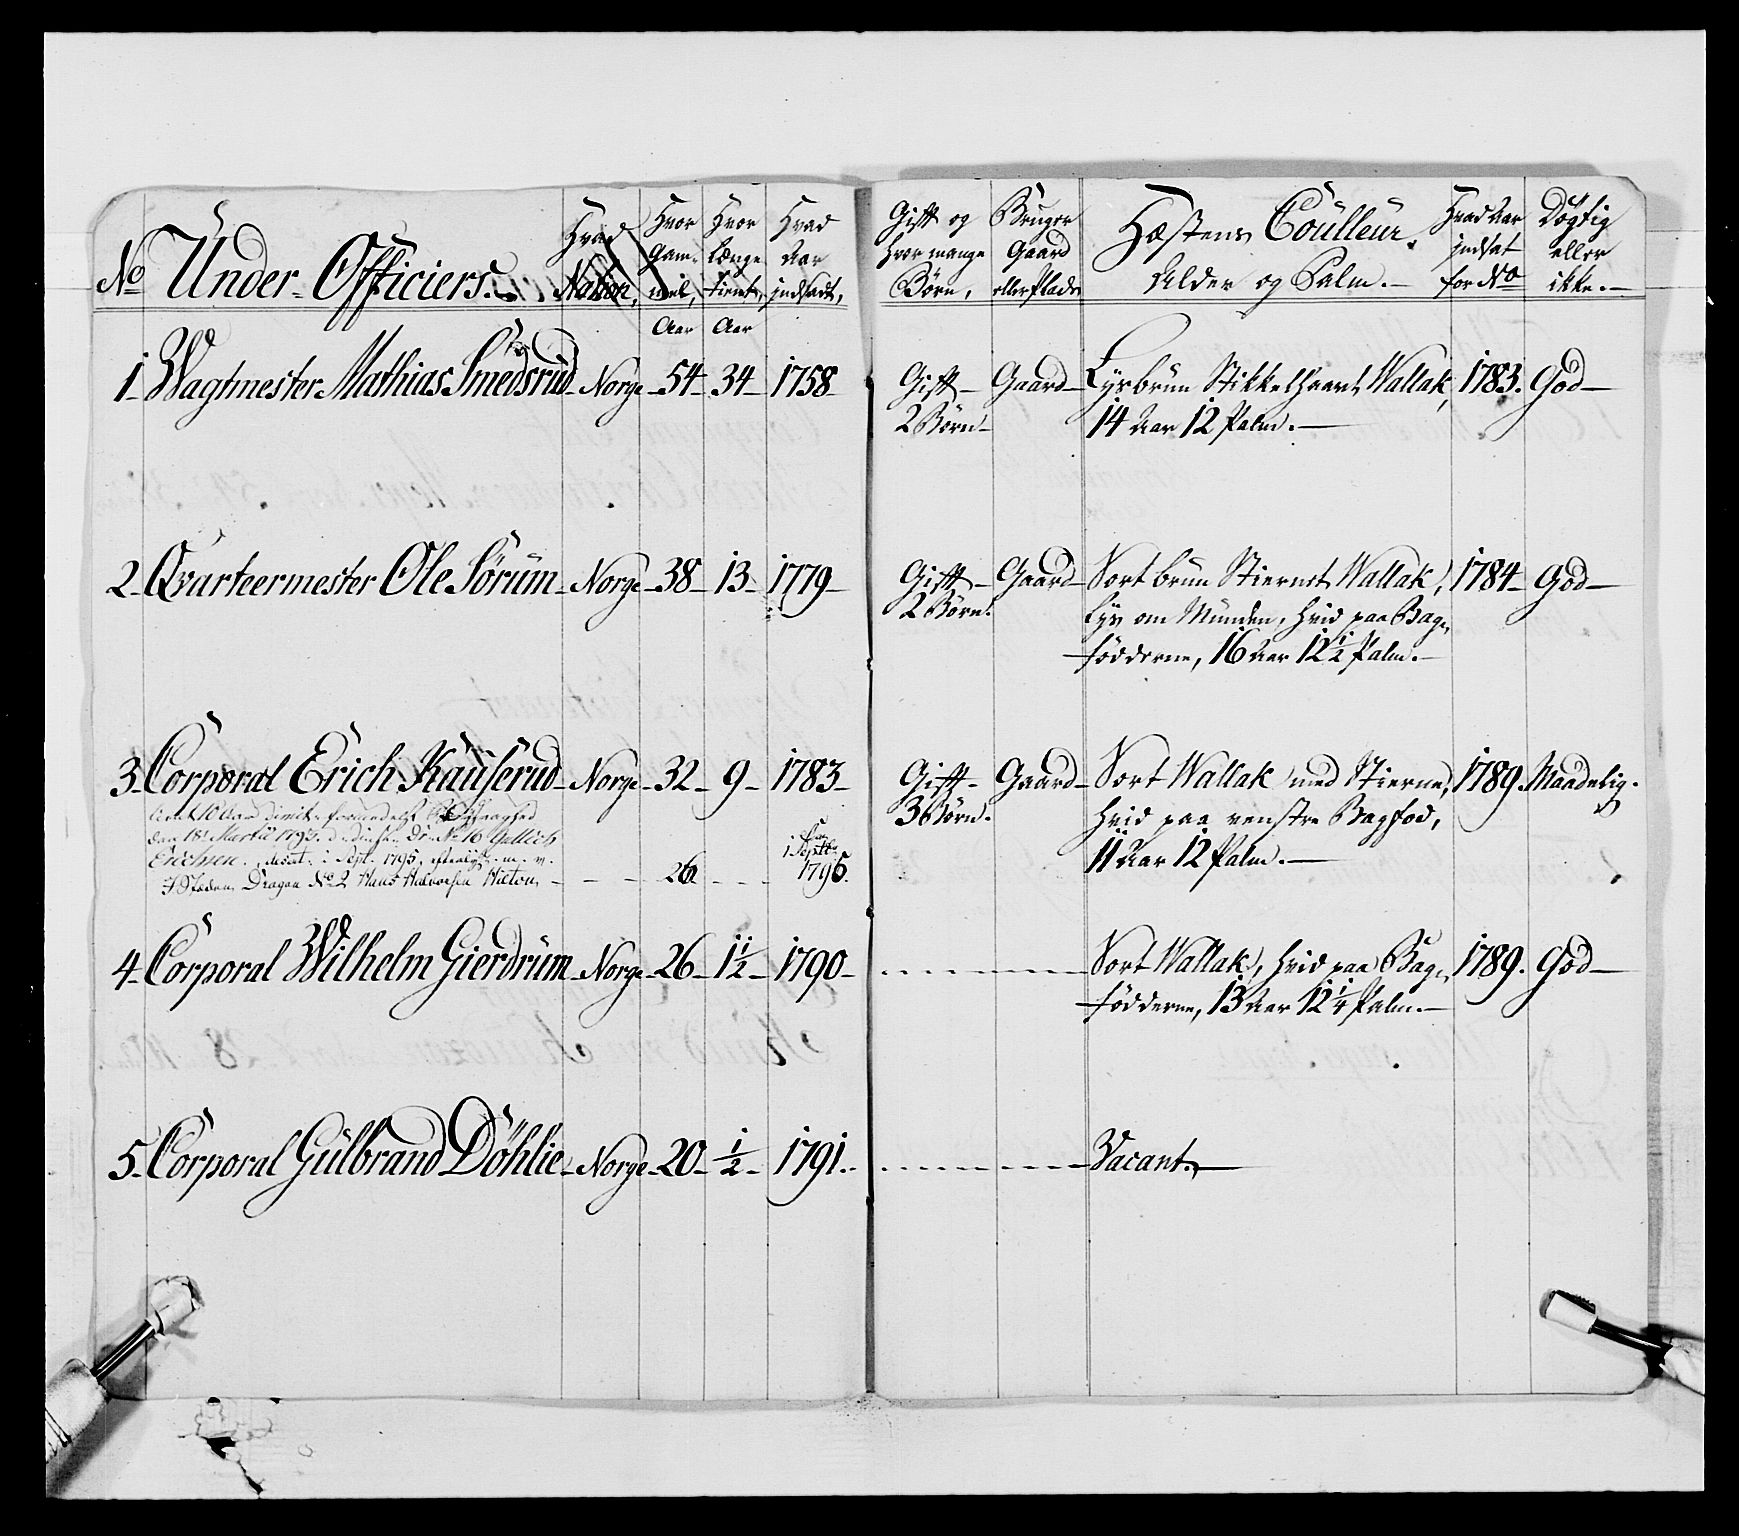 No Under-Officiers. Hvad Nation, Hvor Gam- mel, Hvor Længe tient, Hvad Aar indsadt, Gift og hvor mange Börn, Bruger Gaard eller Plads Hæstens Coulleur. Alder og Palm. Hvad Aar indsat for No Dögtig eller ikke.
Aar Aar
1 Wagtmester Mathias Smedsrud Norge 54 34 1758 Gift Gaard Lysbrun Stikkelhaart Wallak, 1783. God
2 Börn 14 Aar 12 Palm.
2 Qvarteermester Ole Sörum Norge 38 13 1779 Gift Gaard Sort brun Stiernet Wallak, 1784 God
2 Börn. Lys om Munden, hvid paa Bag-
födderne, 16 Aar 12 1/2 Palm.
3 Corporal Erich Kauserud Norge 32 9 1783 Gift Gaard Sort Wallak med Stierne, 1789. Maadelig.
3 Börn. hvid paa venstre Bagfod,
11 Aar 12 Palm.
den 18 Martii 1793. No 16 Gullich
Erichsen, desert. i Sept. 1795,
1 Septbr
I Steden Dragon No 2 Hans Halvorsen 26 1795.
4 Corporal Wilhelm Gierdrum Norge 26 1 1/2 1790 Sort Wallak, hvid paa Bag- 1789. God
födderne, 13 Aar 12 1/4 Palm.
5 Corporal Gulbrand Döhlie Norge 20 1/2 1791. Vacant.